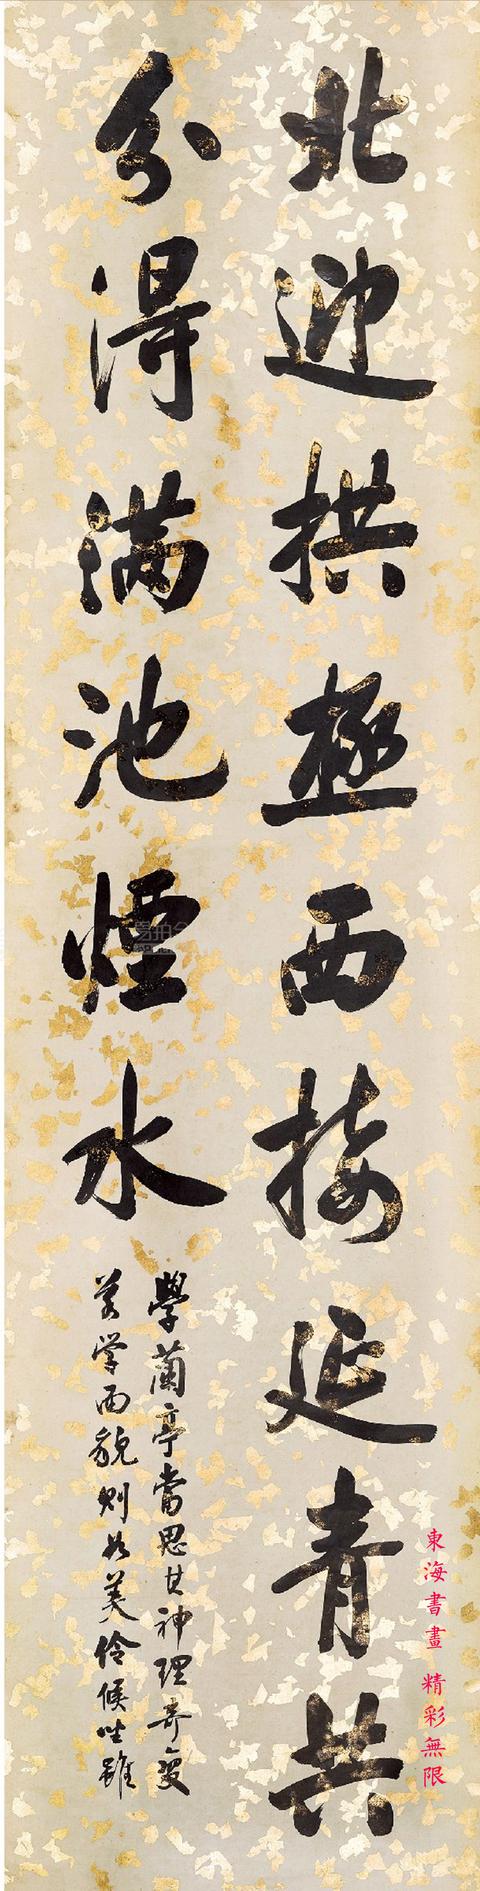 北迎拱極西接延青共
分得滿池煙水
學蘭亭當思其神理奇變
若學面貌則如美伶候坐雖
東海書畫 精彩無限